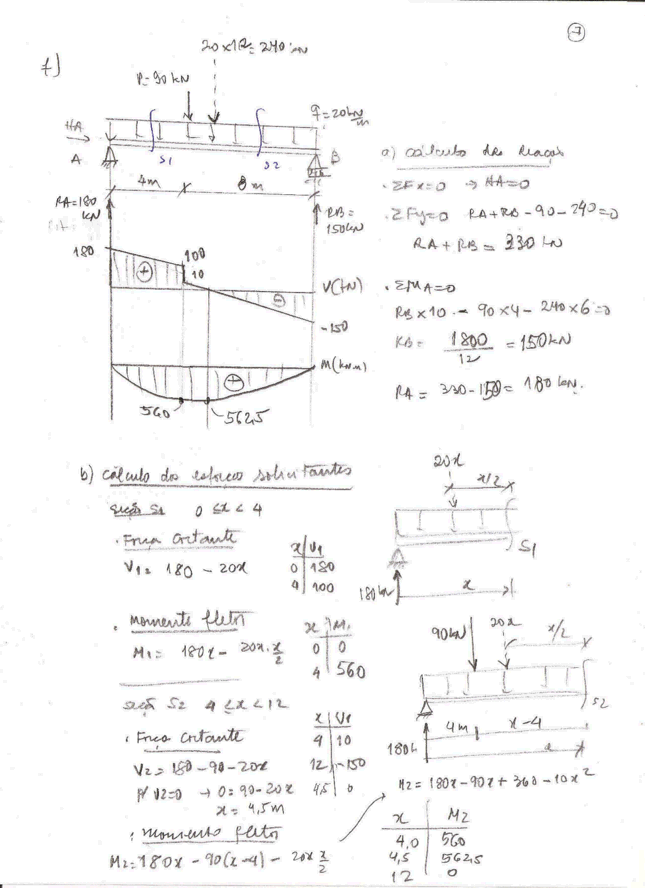 7
f)
20 x 12 = 240 kN
P = 90 kN
q = 20 kN/m
HA
A
S1
S2
B
4m
8 m
RA = 180 kN
RB = 150 kN
180
100
10
+
V(kN)
-
-150
M(kN.m)
+
560
562,5
a) cálculo das reações
. ΣFx=0 → HA=0
. ΣFy=0 RA+RB - 90 - 240=0
RA + RB = 330 kN
. ΣMA=0
RB x 10 - 90 x 4 - 240 x 6 = 0
RB = 1800/12 = 150 kN
RA = 330 - 150 = 180 kN.
b) cálculo dos esforços solicitantes
seção S1 0 ≤ x < 4
. Força Cortante
V1 = 180 - 20x
x | V1
0 | 180
4 | 100
20x
x/2
S1
180 kN
x
. Momento fletor
M1 = 180x - 20x . x/2
x | M1
0 | 0
4 | 560
90 kN
20x
x/2
S2
4m
x-4
180 k
x
seção S2 4 ≤ x < 12
. Força Cortante
V2 = 180 - 90 - 20x
p/ V2=0 → 0 = 90 - 20x
x = 4,5 m
x | V1
4 | 10
12 | -150
4,5 | 0
. momento fletor
M2 = 180x - 90(x-4) - 20x x/2
M2 = 180x - 90x + 360 - 10x²
x | M2
4,0 | 560
4,5 | 562,5
12 | 0